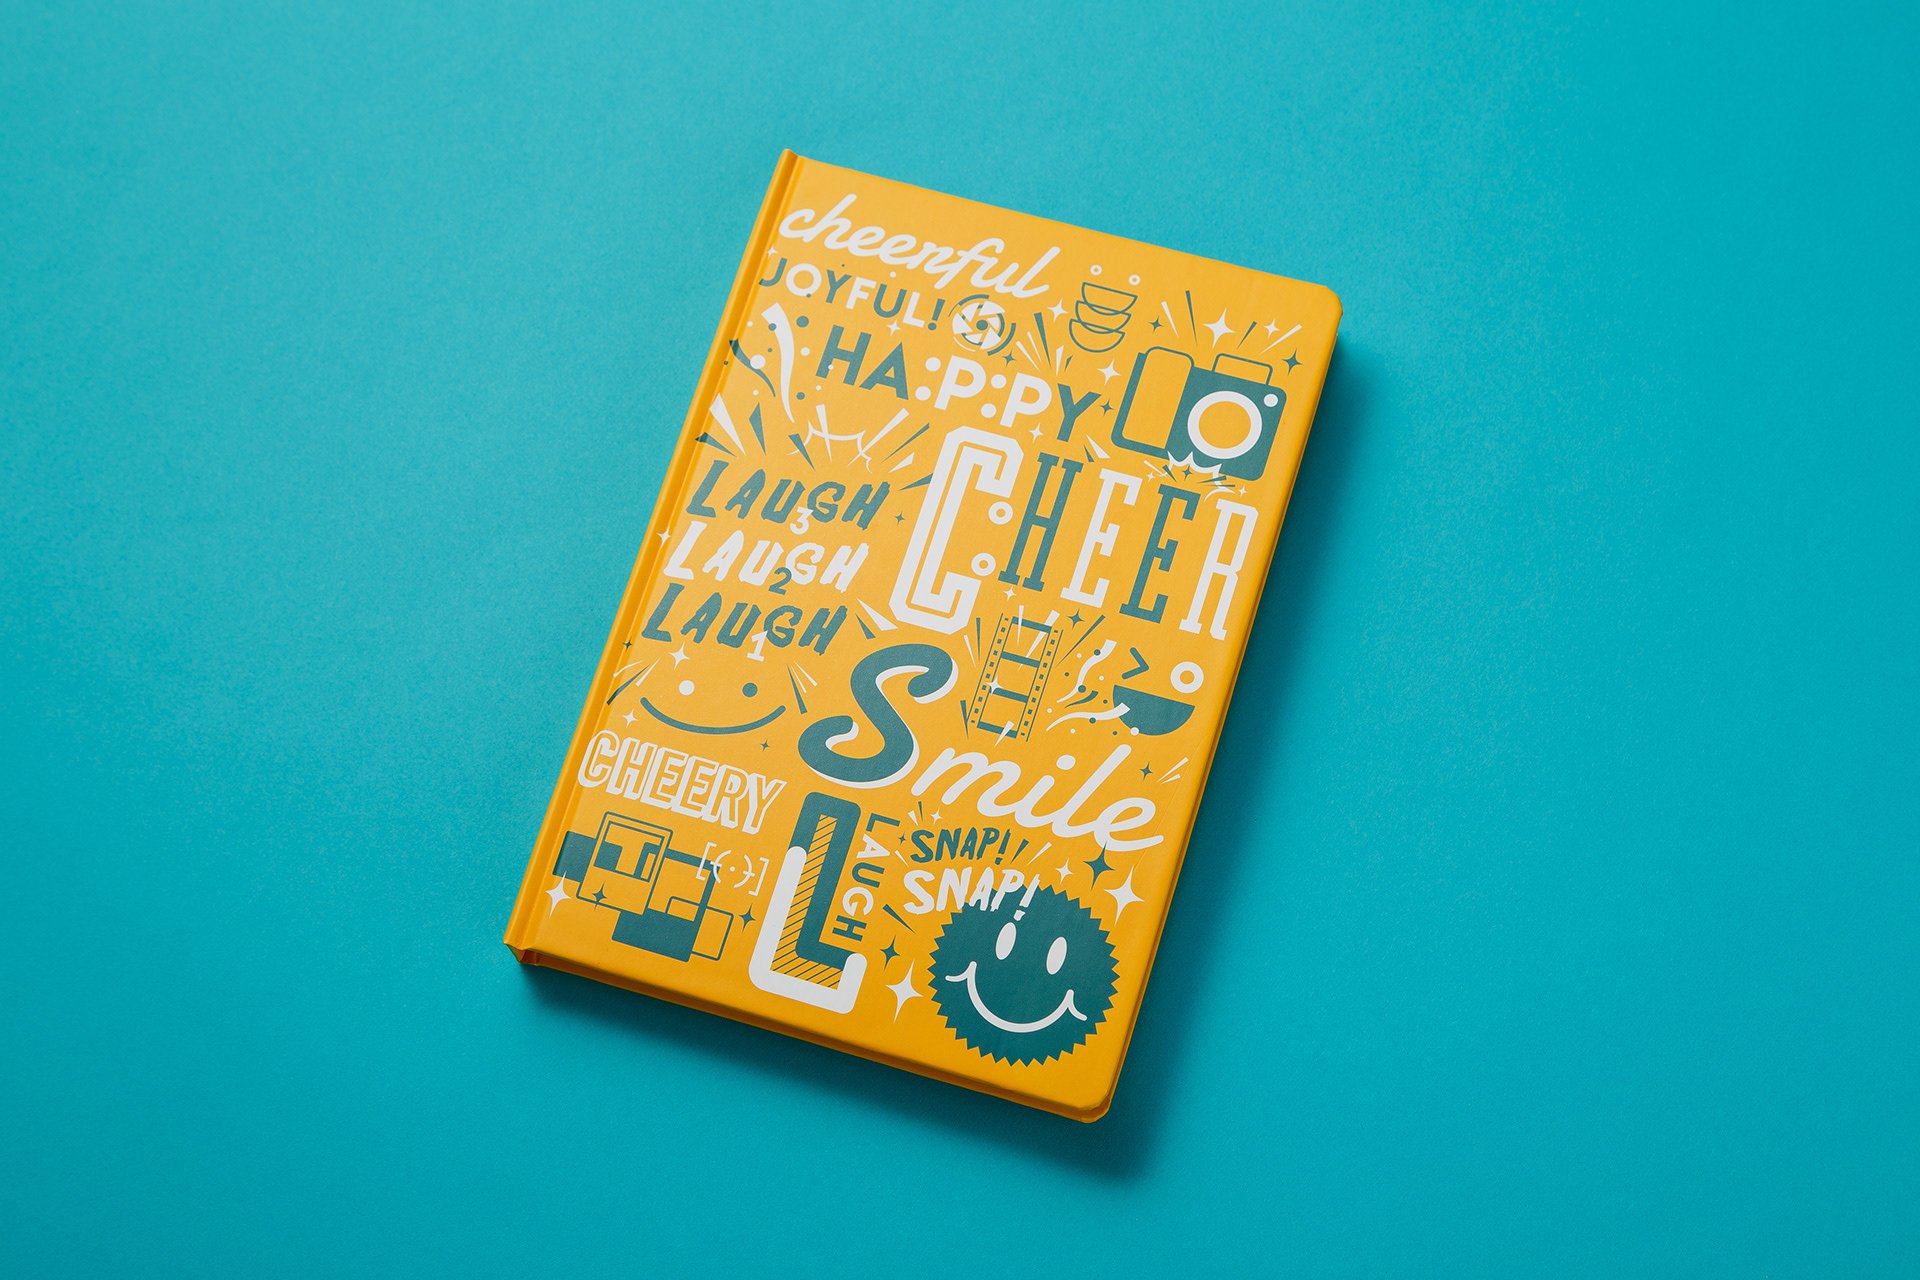 cheerful
JOYFUL!
HAPPY
CHEER
LAUGH
3
LAUGH
2
LAUGH
1
Smile
CHEERY
L
LAUGH
SNAP!
SNAP!